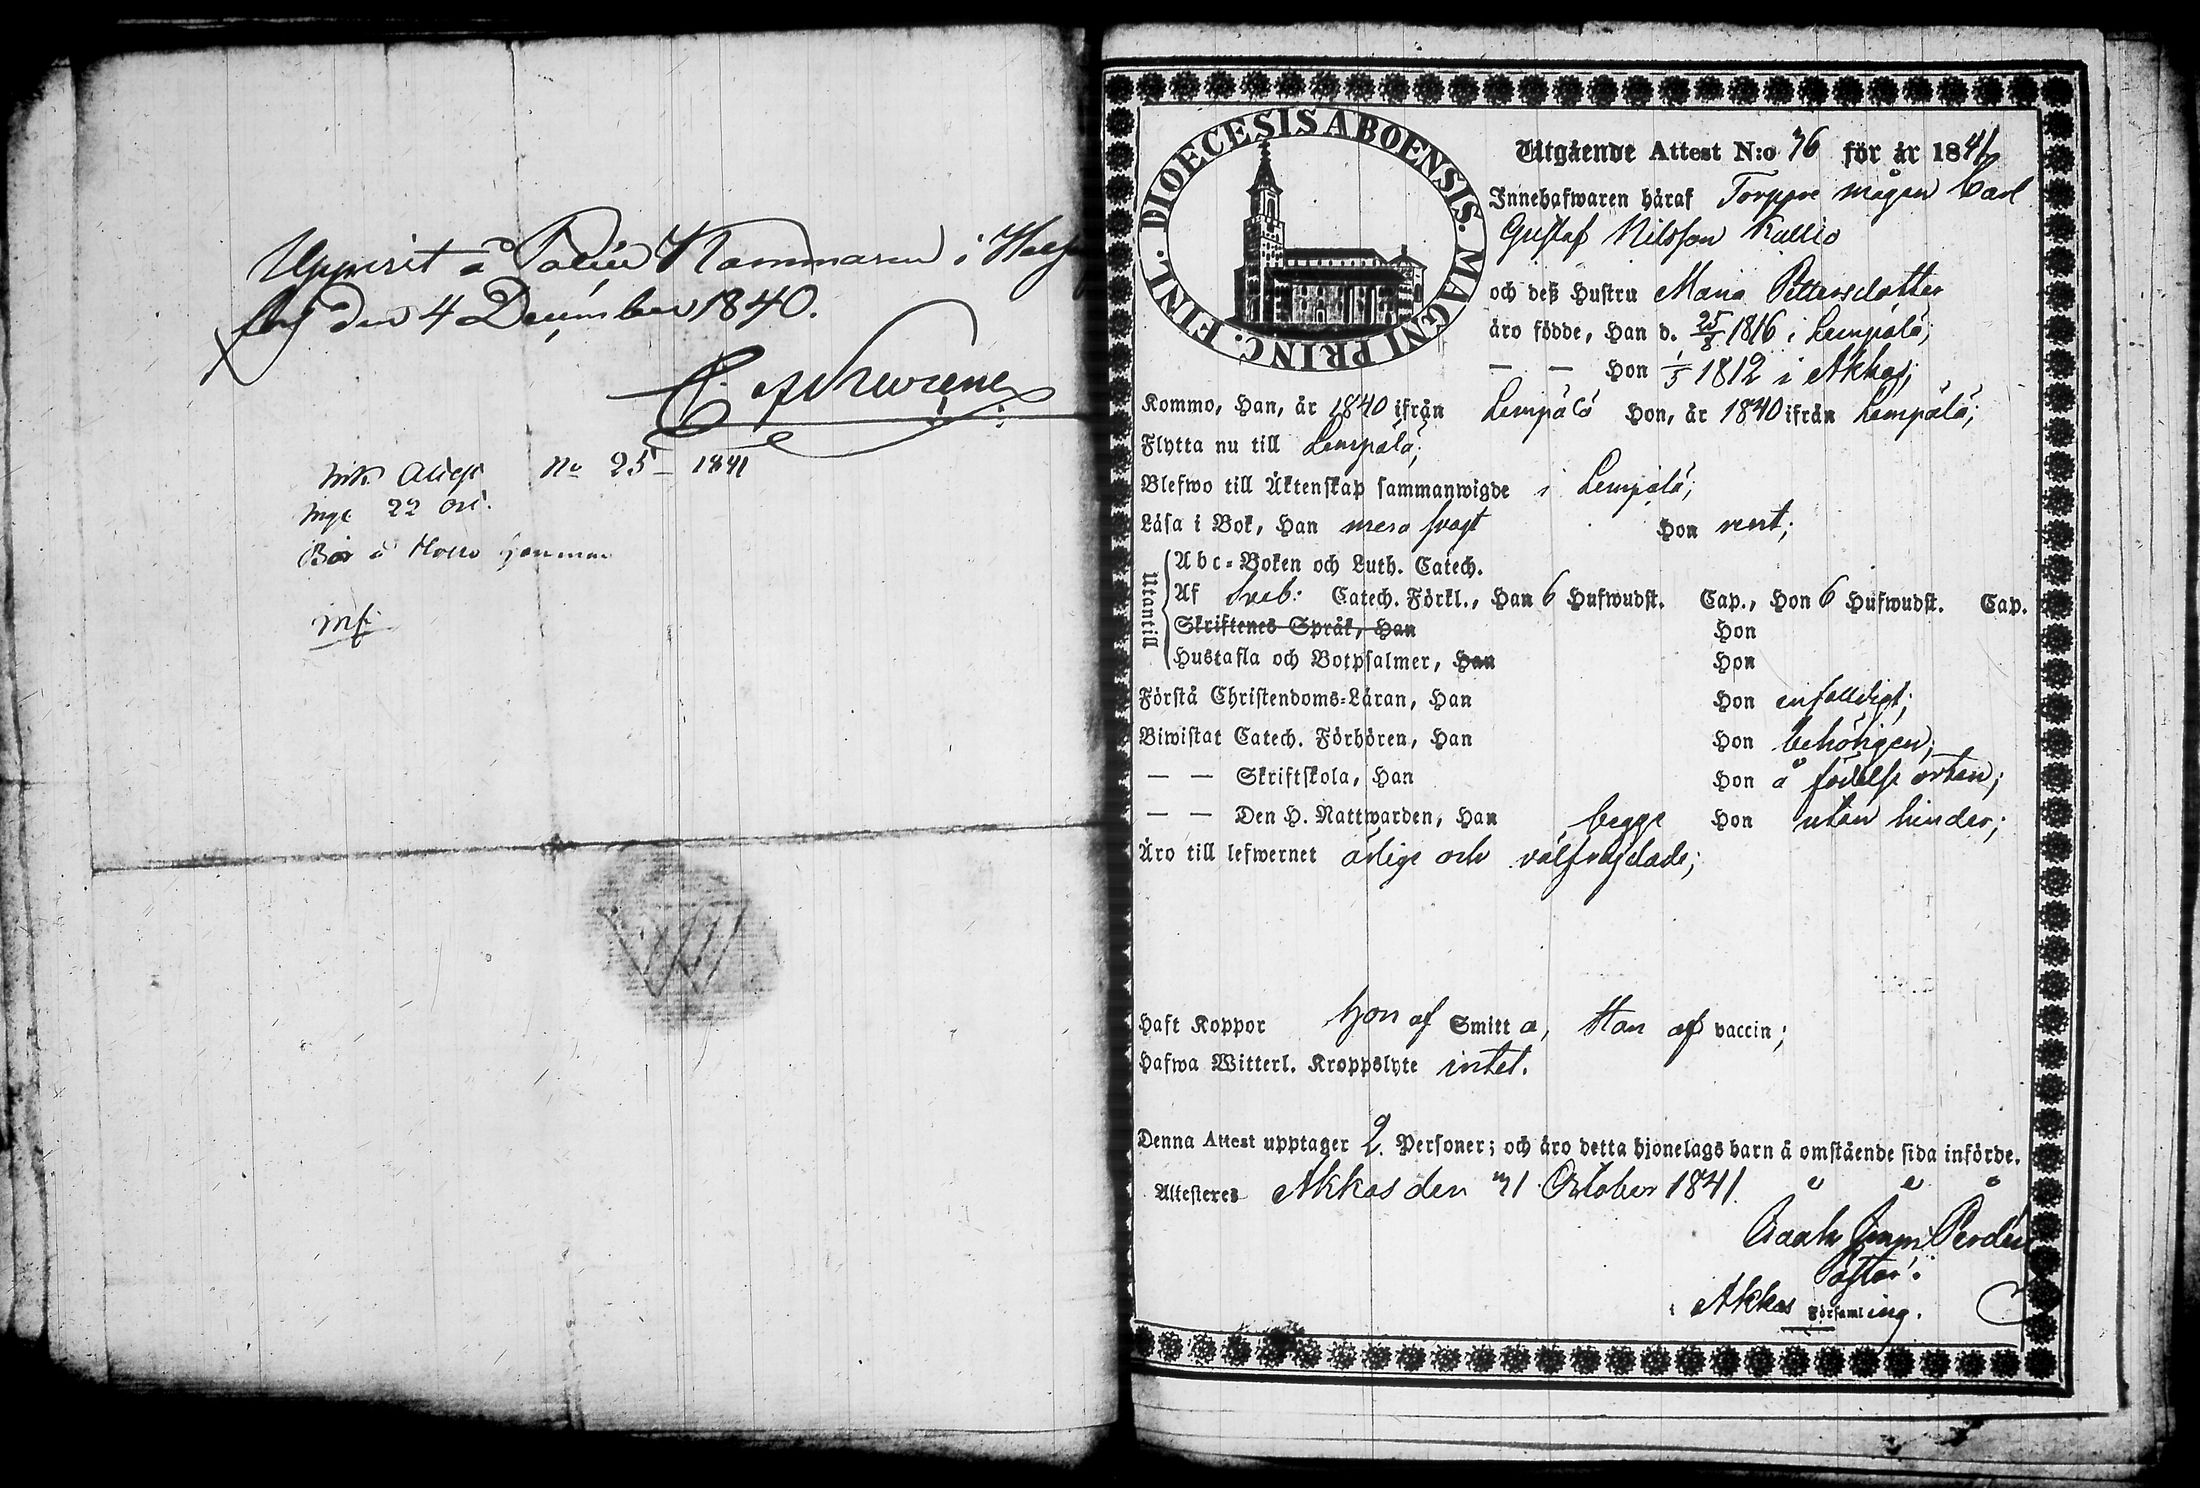 Uppvist å Polise Kammaren i Helsing
fors den 4 December 1840.
Ink. Attest No 25 – 1841
DIOECESIS ABOENSIS. MAGNI PRINC. FINL.
Utgående Attest N:o 76 för år 1841
Innehafwaren häraf Torppare mågen Carl
Gustaf Nilsson Kallio
och deß Hustru Maria Pettersdotter
äro födde, Han d. 25/8 1816 i Lempälä;
— — Hon 1/5 1812 i Akkas;
Kommo, Han, år 1840 ifrån Lempälä Hon, år 1840 ifrån Lempälä;
Flytta nu till Lempälä;
Blefwo till Äktenskap sammanwigde i Lempälä;
Läsa i Bok, Han mera svagt Hon rent;
Utantill
Abc-Boken och Luth. Catech.
Af Sveb: Catech. Förkl., Han 6 Hufwudst. Cap., Hon 6 Hufwudst. Cap.
Skriftenes Språk, Han Hon
Hustafla och Botpsalmer, Han Hon
Förstå Christendoms-Läran, Han Hon enfalldigt;
Biwistat Catech. Förhören, Han Hon behörigen;
— — Skriftskola, Han Hon å födelse orten;
— — Den H. Nattwarden, Han begge Hon utan hinder;
Äro till lefwernet ärlige och välfrägdade;
Haft Koppor Hon af Smitta, Han af vaccin;
Hafwa Witterl. Kroppslyte intet.
Denna Attest upptager 2. Personer; och äro detta hjonelags barn å omstående sida införde.
Attesteres Akkas den 31 October 1841.
Pastor.
i Akkas Församling.